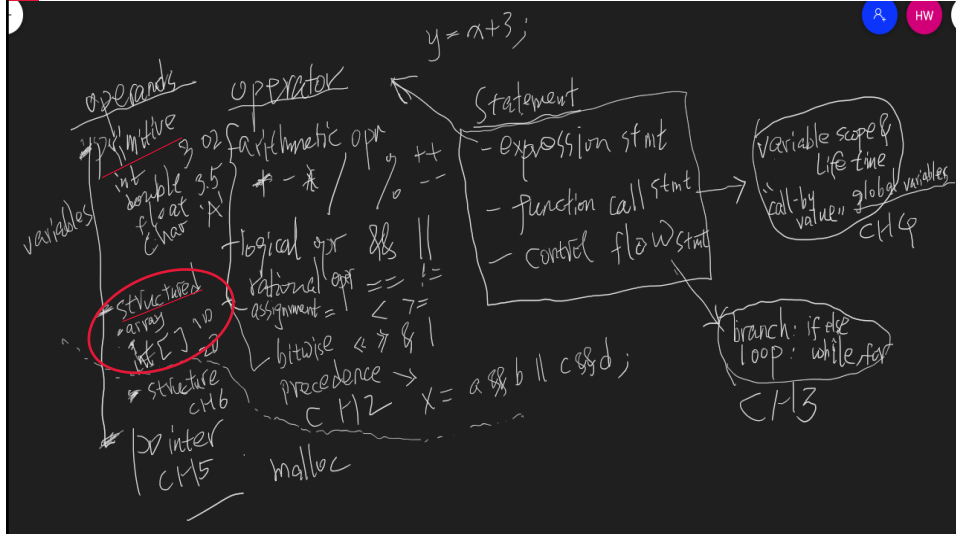 HW
y = x+3;
operands
primitive
int 3 02
double 3.5
float
char 'A'
variables
structured
array
int [ ] 10
20
structure
CH6
pointer
CH5
malloc
operator
arithmetic opr
- * / % ++
--
logical opr && ||
rational opr == !=
assignment = < >=
bitwise << >> & |
precedence →
CH2
x = a && b || c && d ;
Statement
- expression stmt
- function call stmt
- control flow stmt
variable scope &
Life time
"call-by
value" global variables
CH4
branch : if else
loop : while, for
CH3